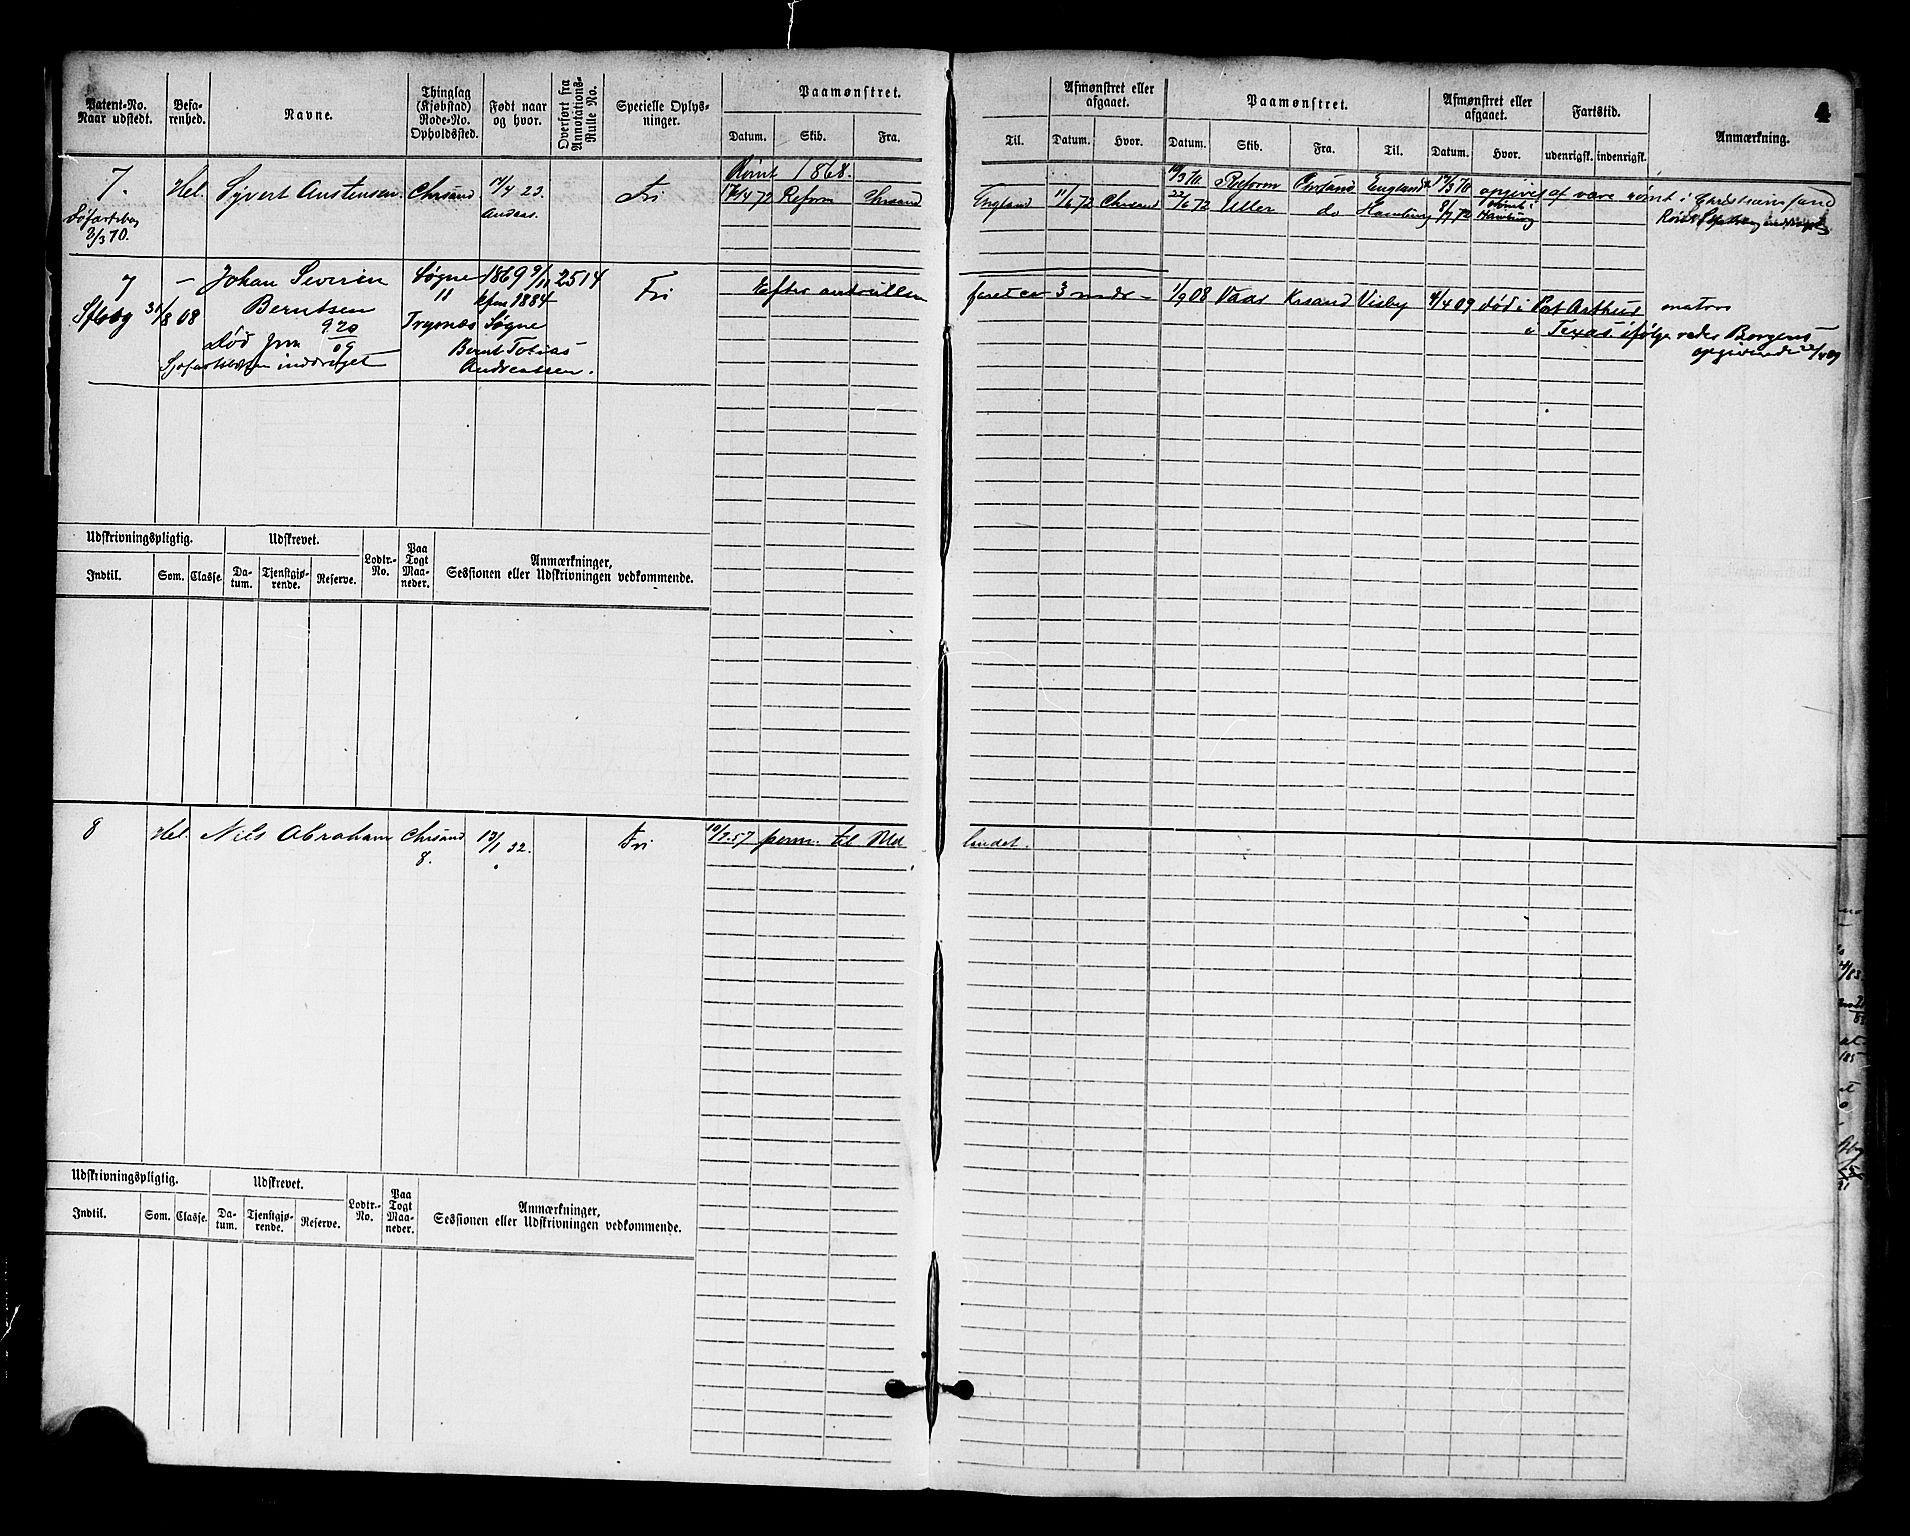 4
Patent-No. Naar udstedt.
Befarenhed.
Navne.
Thinglag (Kjøbstad) Rode-No. Opholdssted.
Født naar og hvor.
Overført fra Annotations-Rulle No.
Specielle Oplysninger.
Paamønstret.
Datum. Skib. Fra.
Til.
Afmønstret eller afgaaet.
Datum. Hvor.
Paamønstret.
Datum. Skib. Fra. Til.
Afmønstret eller afgaaet.
Datum. Hvor.
Fartstid.
udenrigsk. indenrigsk.
Anmærkning.
Rømt 1868.
7. Hel. Syvert Anstensen. Chrsand 17/4 23. Fri 17/4 72 Reform Chrsand England 11/6 72 Chrsand
19/3 70. Reform Chrsand England 19/3 70 opgives af være rømt i Christianssand
22/6 72 Uller do Hamburg 9/7 72 Rømt i Hamburg
Søfartsbog
8/3 70.
7 – Johan Severin Søgne 1869 9/11 2514 Fri Efter anstillen faret ca 3 mdr –
Sftsbg 31/8 08 Berntsen 11 kfm 1884
1/9 08 Vaar Krsand Visby 4/4 09 død i Port Arthur matros
Død jrn 920/09 Trysnes Søgne
i Texas ifølge reder Borgens
opgivende 22/4 09
Søfartsbogen inddraget
Bernt Tobias
Andreassen.
Udskrivningspligtig.
Indtil. Som. Classe.
Udskrevet.
Datum. Tjenstgjørende. Reserve.
Lodtr.-No.
Paa Togt Maaneder.
Anmærkninger,
Sessionen eller Udskrivningen vedkommende.
8 Hel. Nils Abraham Chrsand 12/1 32. Fri perm. til Udlandet.
8.
Udskrivningspligtig.
Indtil. Som. Classe.
Udskrevet.
Datum. Tjenstgjørende. Reserve.
Lodtr.-No.
Paa Togt Maaneder.
Anmærkninger,
Sessionen eller Udskrivningen vedkommende.